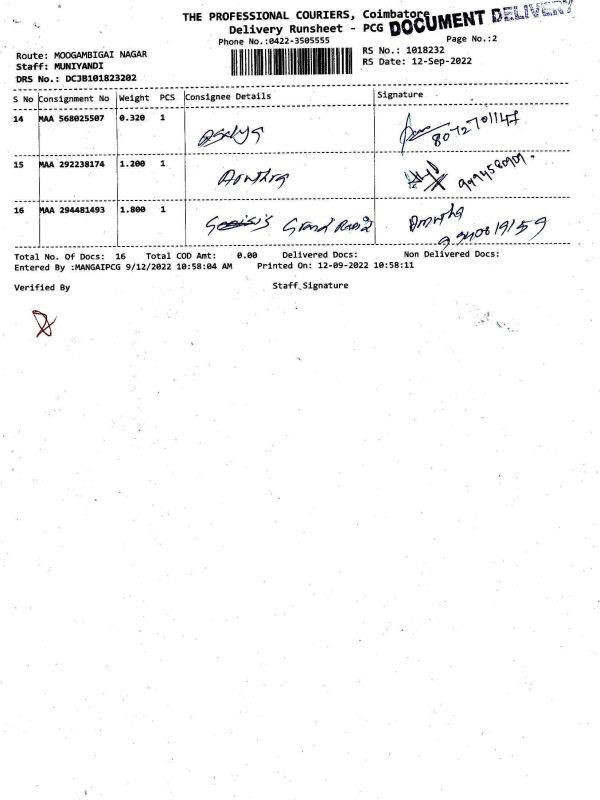 THE PROFESSIONAL COURIERS, Coimbatore
DOCUMENT DELIVERY
Delivery Runsheet - PCG
Phone No.:0422-3505555
Page No.:2
Route: MOOGAMBIGAI NAGAR
RS No.: 1018232
Staff: MUNIYANDI
RS Date: 12-Sep-2022
DRS No.: DCJB101823202
S No Consignment No Weight PCS Consignee Details Signature
14 MAA 568025507 0.320 1
8072701147
15 MAA 292238174 1.200 1
16 MAA 294481493 1.800 1
Total No. Of Docs: 16 Total COD Amt: 0.00 Delivered Docs: Non Delivered Docs:
Entered By :MANGAIPCG 9/12/2022 10:58:04 AM Printed On: 12-09-2022 10:58:11
Verified By Staff Signature